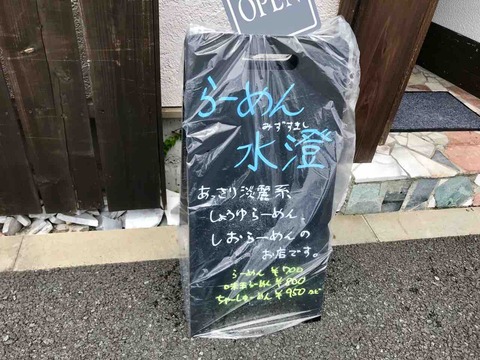 OPEN
らーめん
みずすまし
水澄
あっさり淡麗系
しょうゆらーめん、
しおらーめんの
お店です。
らーめん ¥700
味玉らーめん ¥800
ちゃーしゅーめん ¥950 など